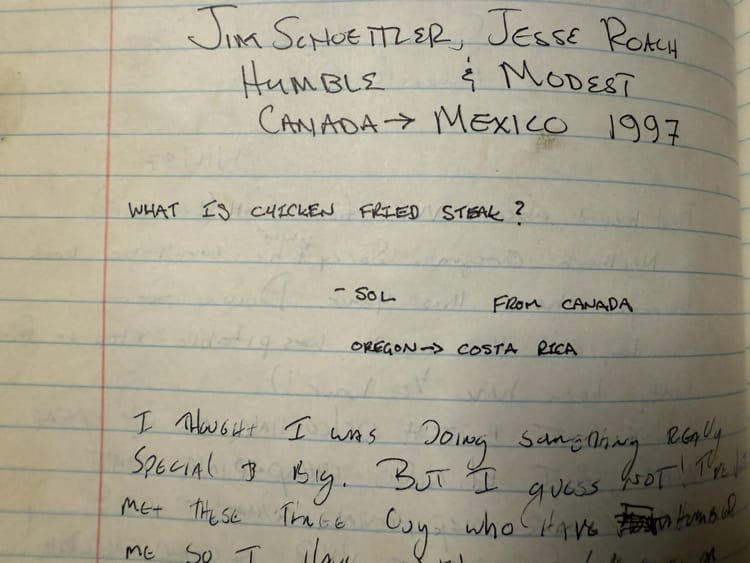 JIM SCHOETTLER, JESSE ROACH
HUMBLE & MODEST
CANADA → MEXICO 1997
WHAT IS CHICKEN FRIED STEAK?
- SOL FROM CANADA
OREGON → COSTA RICA
I THOUGHT I WAS DOING SOMETHING REALLY
SPECIAL & BIG. BUT I GUESS NOT!
MET THESE THREE GUY WHO HAVE HUMBLED
ME SO I